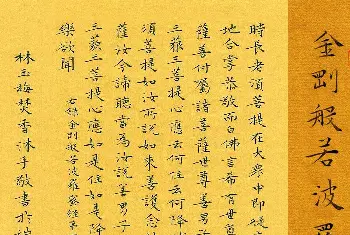 金剛般若波羅
時長老須菩提在大眾中即從
地合掌恭敬而白佛言希有世尊
薩善付囑諸菩薩世尊善男
三菽三菩提心應云何住云何降
須菩提如汝所說如來善護念
薩汝今諦聽當為汝說善男子
三藐三菩提心應如是住如是降
樂欲聞
右錄金剛般若波羅蜜經
林玉梅焚香沐手敬書於